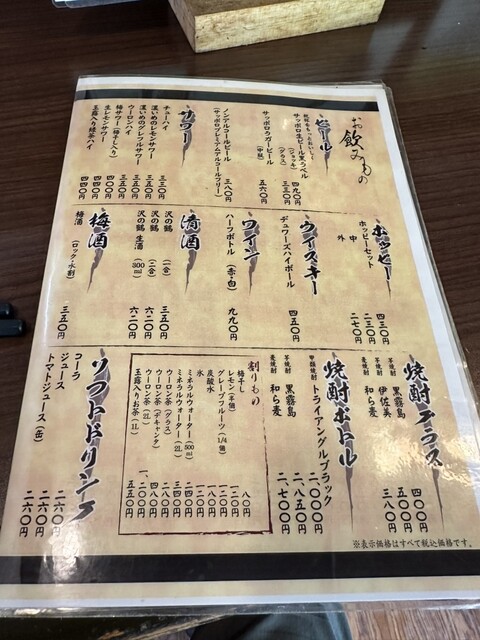 お飲みもの
ビール
抗冠をもっとおいしく
サッポロ生ビール黒ラベル
(ジョッキ) 四九〇円
(グラス) 三三〇円
サッポロラガービール
(中瓶) 五六〇円
ノンアルコールビール
(サッポロプレミアムアルコールフリー) 三八〇円
サワー
チューハイ 三三〇円
濃いめのレモンサワー 三五〇円
濃いめのグレフルサワー 三五〇円
ウーロンハイ 三五〇円
梅サワー(梅干し入り) 四〇〇円
生レモンサワー 四四〇円
玉露入り緑茶ハイ 四四〇円
ホッピー
ホッピーセット 四三〇円
中 二三〇円
外 二一〇円
ウイスキー
デュワーズハイボール 四五〇円
ワイン
ハーフボトル (赤・白) 九九〇円
清酒
沢の鶴 (一合) 三五〇円
沢の鶴 (二合) 六二〇円
沢の鶴 生酒 (300ml) 六二〇円
梅酒
梅酒 (ロック・水割) 三五〇円
焼酎グラス
芋焼酎 黒霧島 四〇〇円
芋焼酎 伊佐美 五〇〇円
麦焼酎 和ら麦 三八〇円
焼酎ボトル
甲類焼酎 トライアングルブラック 二、〇〇〇円
芋焼酎 黒霧島 二、八五〇円
麦焼酎 和ら麦 二、七〇〇円
割りもの
梅干し 八〇円
レモン (半個) 一二〇円
グレープフルーツ (1/4個) 一二〇円
氷 一〇〇円
炭酸水 二〇〇円
ミネラルウォーター (500ml) 二三〇円
ミネラルウォーター (2L) 三四〇円
ウーロン茶 (グラス) 二〇〇円
ウーロン茶 (デキャンタ) 四八〇円
ウーロン茶 (2L) 一、〇〇〇円
玉露入りお茶 (1L) 五五〇円
ソフトドリンク
コーラ 二六〇円
ジュース 二六〇円
トマトジュース (缶) 二六〇円
※表示価格はすべて税込価格です。